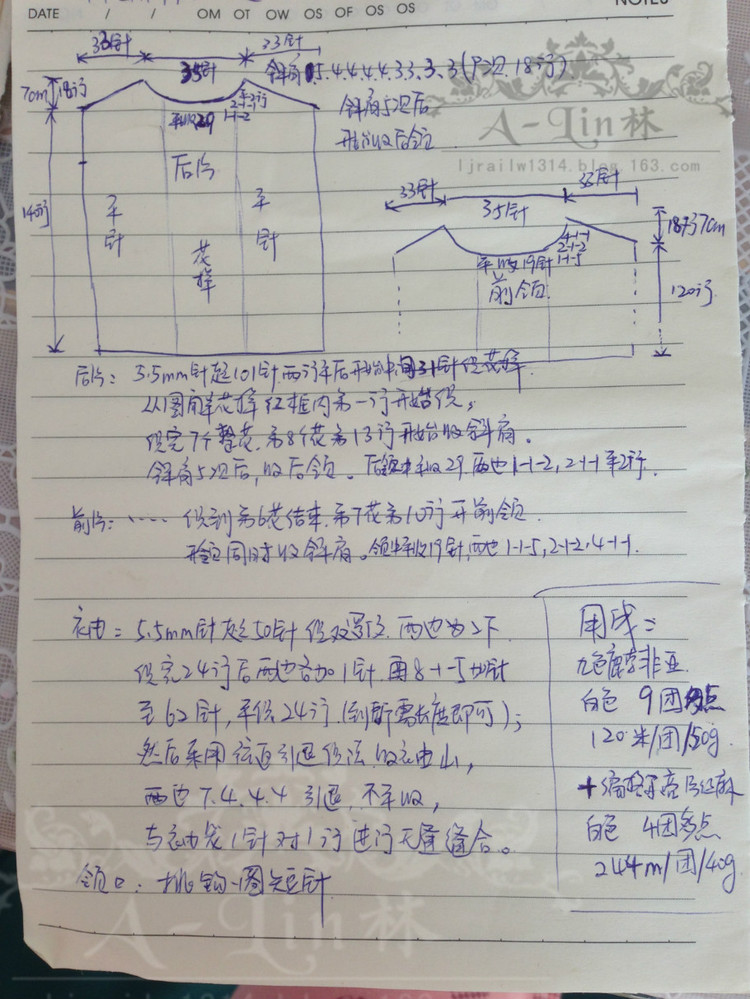 DATE / / OM OT OW OS OF OS OS NOTES
33针 35针 33针
斜肩 5.4.4.4.4.3.3.3.3(8次.18行)
7cm 18行
平2行
2-1-1
1-1-2
平收29
斜肩5次后
开始收后领
A-Lin林
ljrailw1314.blog.163.com
后片
140行
平针
花样
平针
33针 35针 33针
18行 7cm
4-1-1
2-1-2
1-1-5
平收19针
前领
120行
后片: 3.5mm针起101针.两行平后开始中间31针织花样.
从图解花样红框内第一行开始织,
织完7个整花.第8个花第13行开始收斜肩。
斜肩5次后,收后领。后领中平收29.两边1-1-2,2-1-1平2行.
前片: ····· 织到第6花结束.第7花第10行开前领.
开领同时收斜肩。领中平收19针,两边1-1-5,2-1-2,4-1-1.
衣袖: 5.5mm针起50针织双罗纹.两边为2下
织完24行后两边各加1针.再8-1-5加针
至62针,平织24行.(到所需长度即可);
然后采用往返引退织法.收衣袖山,
两边7.4.4.4.引退.不平收,
与衣袖笼1针对1行进行无痕缝合。
领口: 挑钩一圈短针
用线:
九色鹿索非亚.
白色 9团多点
120米/团/50g.
+ 亮片
白色 4团多点
244m/团/40g
A-Lin林